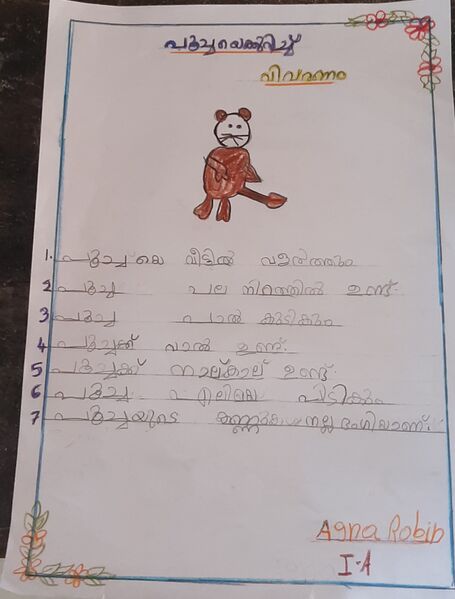 പൂച്ചയെക്കുറിച്ച്
വിവരണം
1. പൂച്ചയെ വീട്ടിൽ വളർത്തും
2 പൂച്ച പല നിറത്തിൽ ഉണ്ട്.
3 പൂച്ച പാൽ കുടികും
4 പൂച്ചക്ക് വാൽ ഉണ്ട്.
5 പൂച്ചക്ക് നാല്കാല് ഉണ്ട്
6 പൂച്ച എലിയെ പിടികും
7 പൂച്ചയുടെ നല്ല ഭംഗിയാണ്.
Agna Robin
I-A